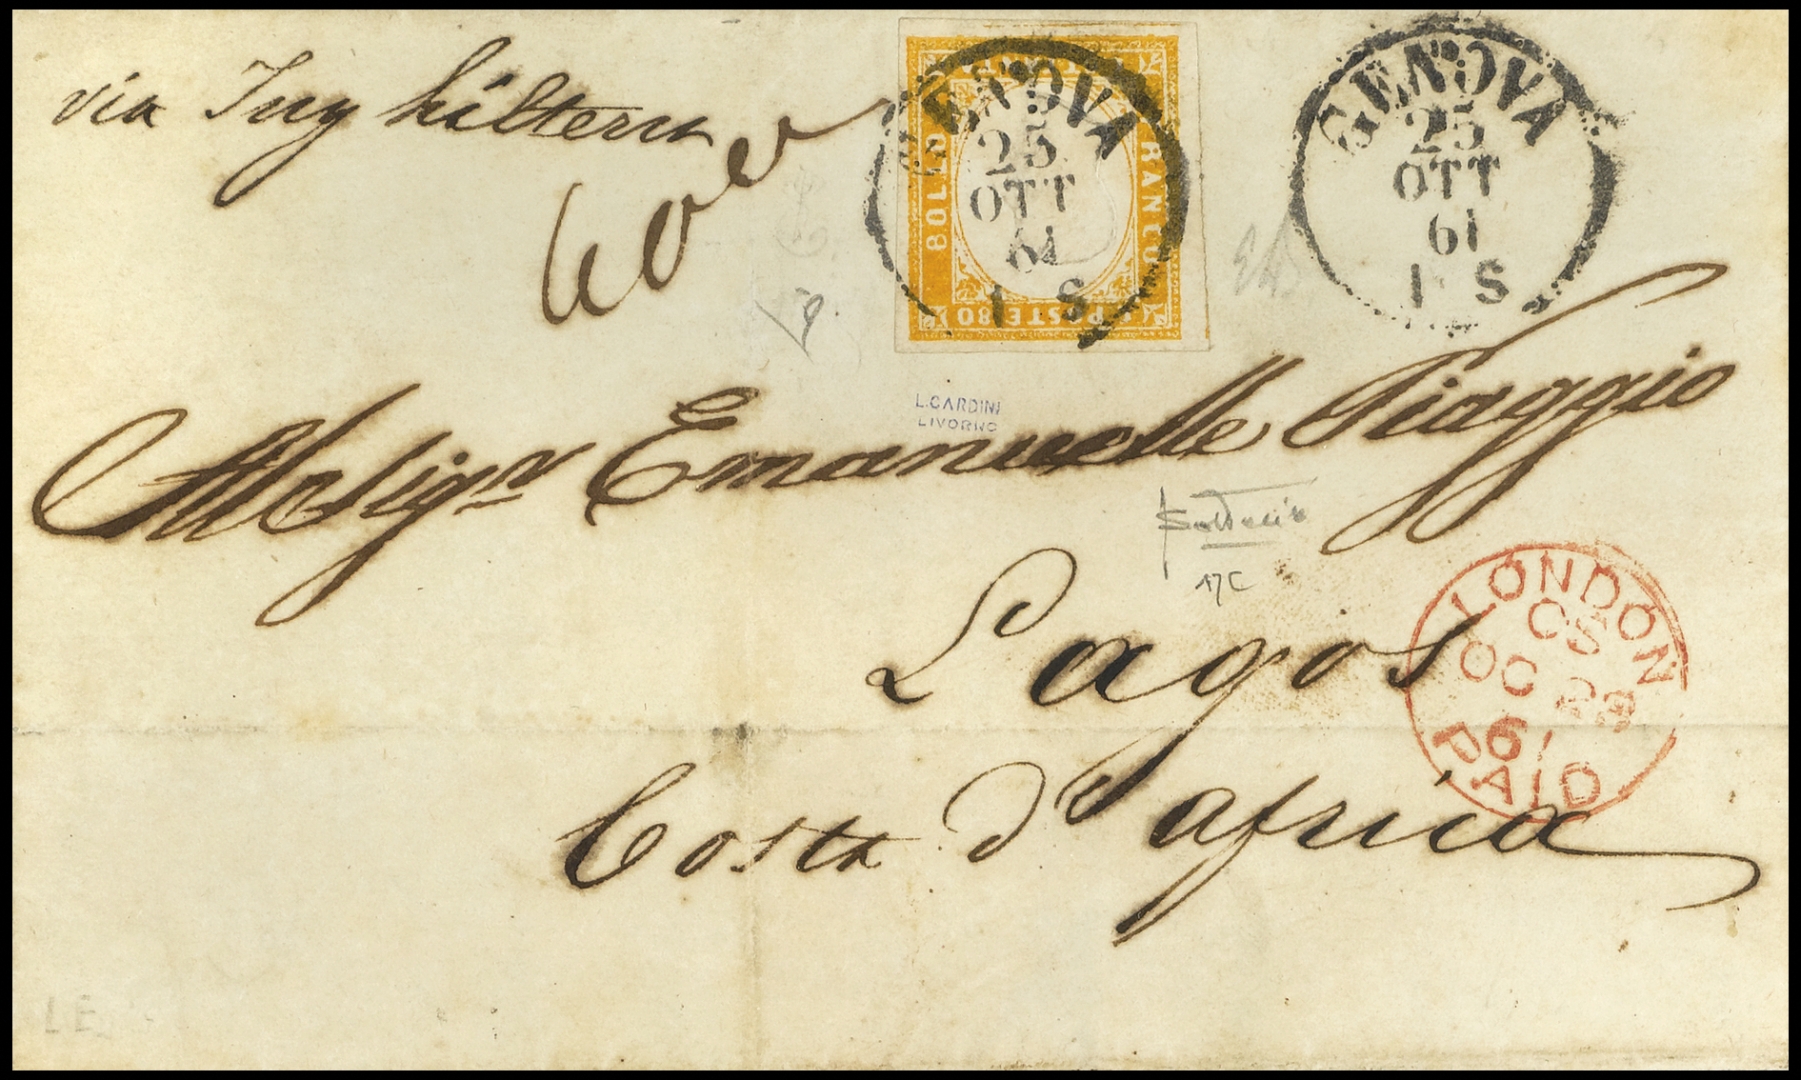 via Inghilterra
GENOVA
25
OTT
61
1 S
BOLLO
FRANCO
C. POSTE 80
GENOVA
25
OTT
61
1 S
L. CARDINI
LIVORNO
Al Sigr Emanuelle Piaggio
17C
Lagos
LONDON
CS
OC 28
61
PAID
Costa d'africa
LE